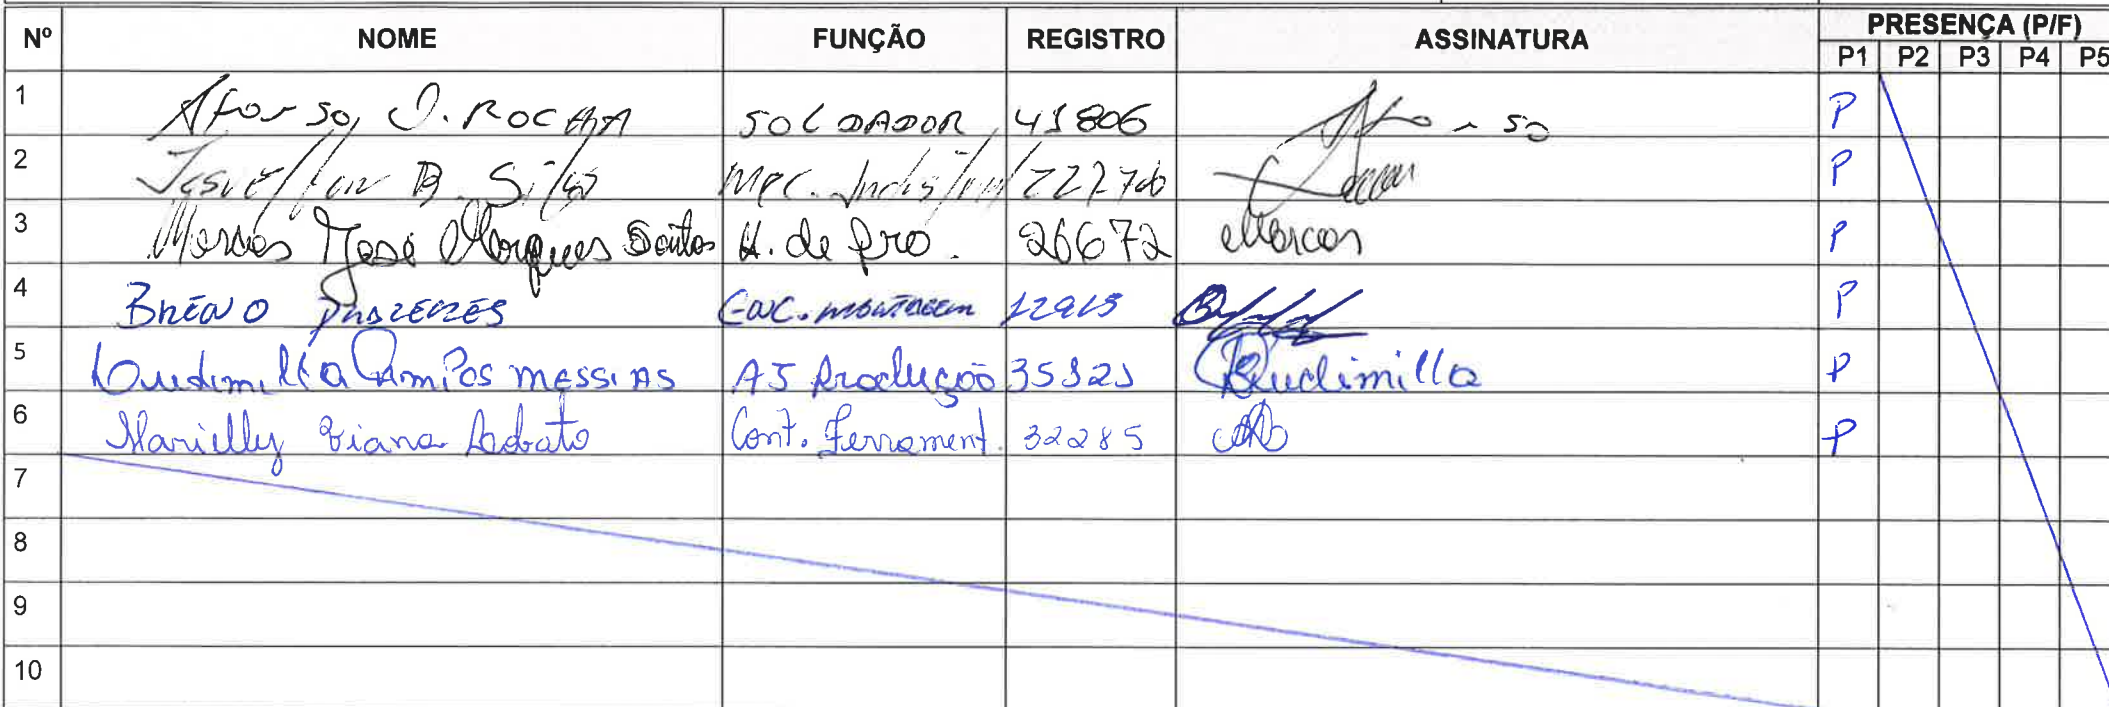 Nº NOME FUNÇÃO REGISTRO ASSINATURA PRESENÇA (P/F)
P1 P2 P3 P4 P5
1 Afonso J. ROCHA SOLDADOR 41806 Afonso P
2 B. Silva Mec. 22770 P
3 Marcos José Marques Santos A. de pro. 26672 Marcos P
4 BRENO ENC. MONTAGEM P
5 Ludimilla Campos MESSIAS AJ Produção 35321 Ludimilla P
6 Marielly Viana Lobato Cont. Ferrament. 32285 P
7
8
9
10